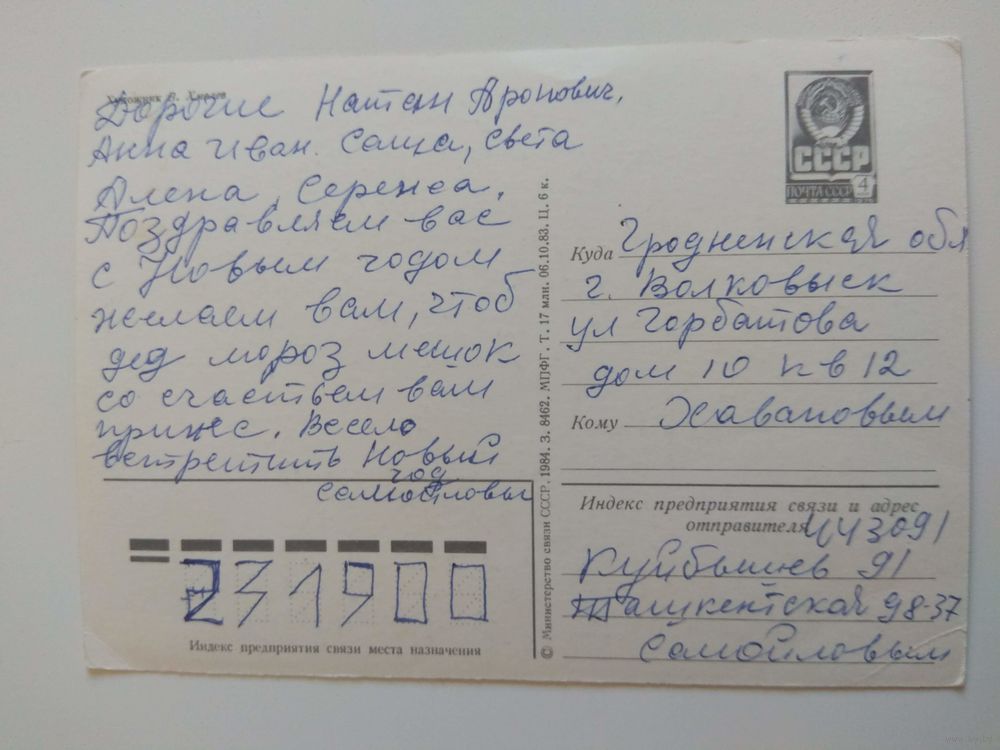 Художник В.
Дорогие Натан Аронович,
Анна Иван. Саша, Света
Алена, Сережа.
Поздравляем вас
с Новым годом
желаем вам, чтоб
дед мороз мешок
со счастьем вам
принес. Весело
встретить Новый
год
Самойловы
СССР
ПОЧТА СССР 4
Куда Гродненская обл
г. Волковыск
ул Горбатова
дом 10 кв 12
Кому Хавановым
Индекс предприятия связи и адрес
отправителя 443091
Куйбышев 91
Ташкентская 98-37
Самойловым
231900
Индекс предприятия связи места назначения
© Министерство связи СССР. 1984. З. 8462. МПФГ. Т. 17 млн. 06.10.83. Ц. 6 к.